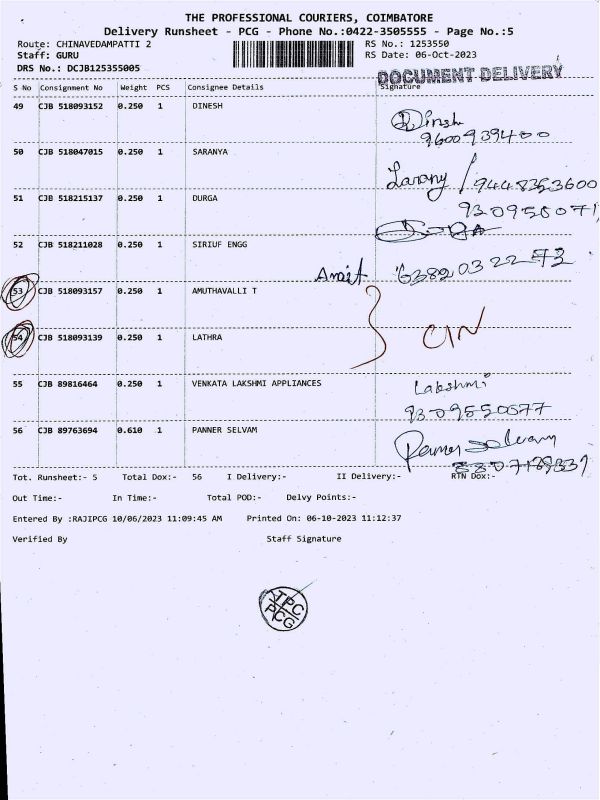 THE PROFESSIONAL COURIERS, COIMBATORE
Delivery Runsheet - PCG - Phone No.:0422-3505555 - Page No.:5
Route: CHINAVEDAMPATTI 2 RS No.: 1253550
Staff: GURU RS Date: 06-Oct-2023
DRS No.: DCJB125355005
DOCUMENT DELIVERY
S No Consignment No Weight PCS Consignee Details Signature
49 CJB 518093152 0.250 1 DINESH
Dinsh
9600939400
50 CJB 518047015 0.250 1 SARANYA
Sarany 9448353600
51 CJB 518215137 0.250 1 DURGA
930956071
52 CJB 518211028 0.250 1 SIRIUF ENGG
6382032273
53 CJB 518093157 0.250 1 AMUTHAVALLI T
54 CJB 518093139 0.250 1 LATHRA
CIN
55 CJB 89816464 0.250 1 VENKATA LAKSHMI APPLIANCES
Lakshmi
9309550577
56 CJB 89763694 0.610 1 PANNER SELVAM
Panner selvam
Tot. Runsheet:- 5 Total Dox:- 56 I Delivery:- II Delivery:- RTN Dox:-
Out Time:- In Time:- Total POD:- Delvy Points:-
Entered By :RAJIPCG 10/06/2023 11:09:45 AM Printed On: 06-10-2023 11:12:37
Verified By Staff Signature
TPC
PCG